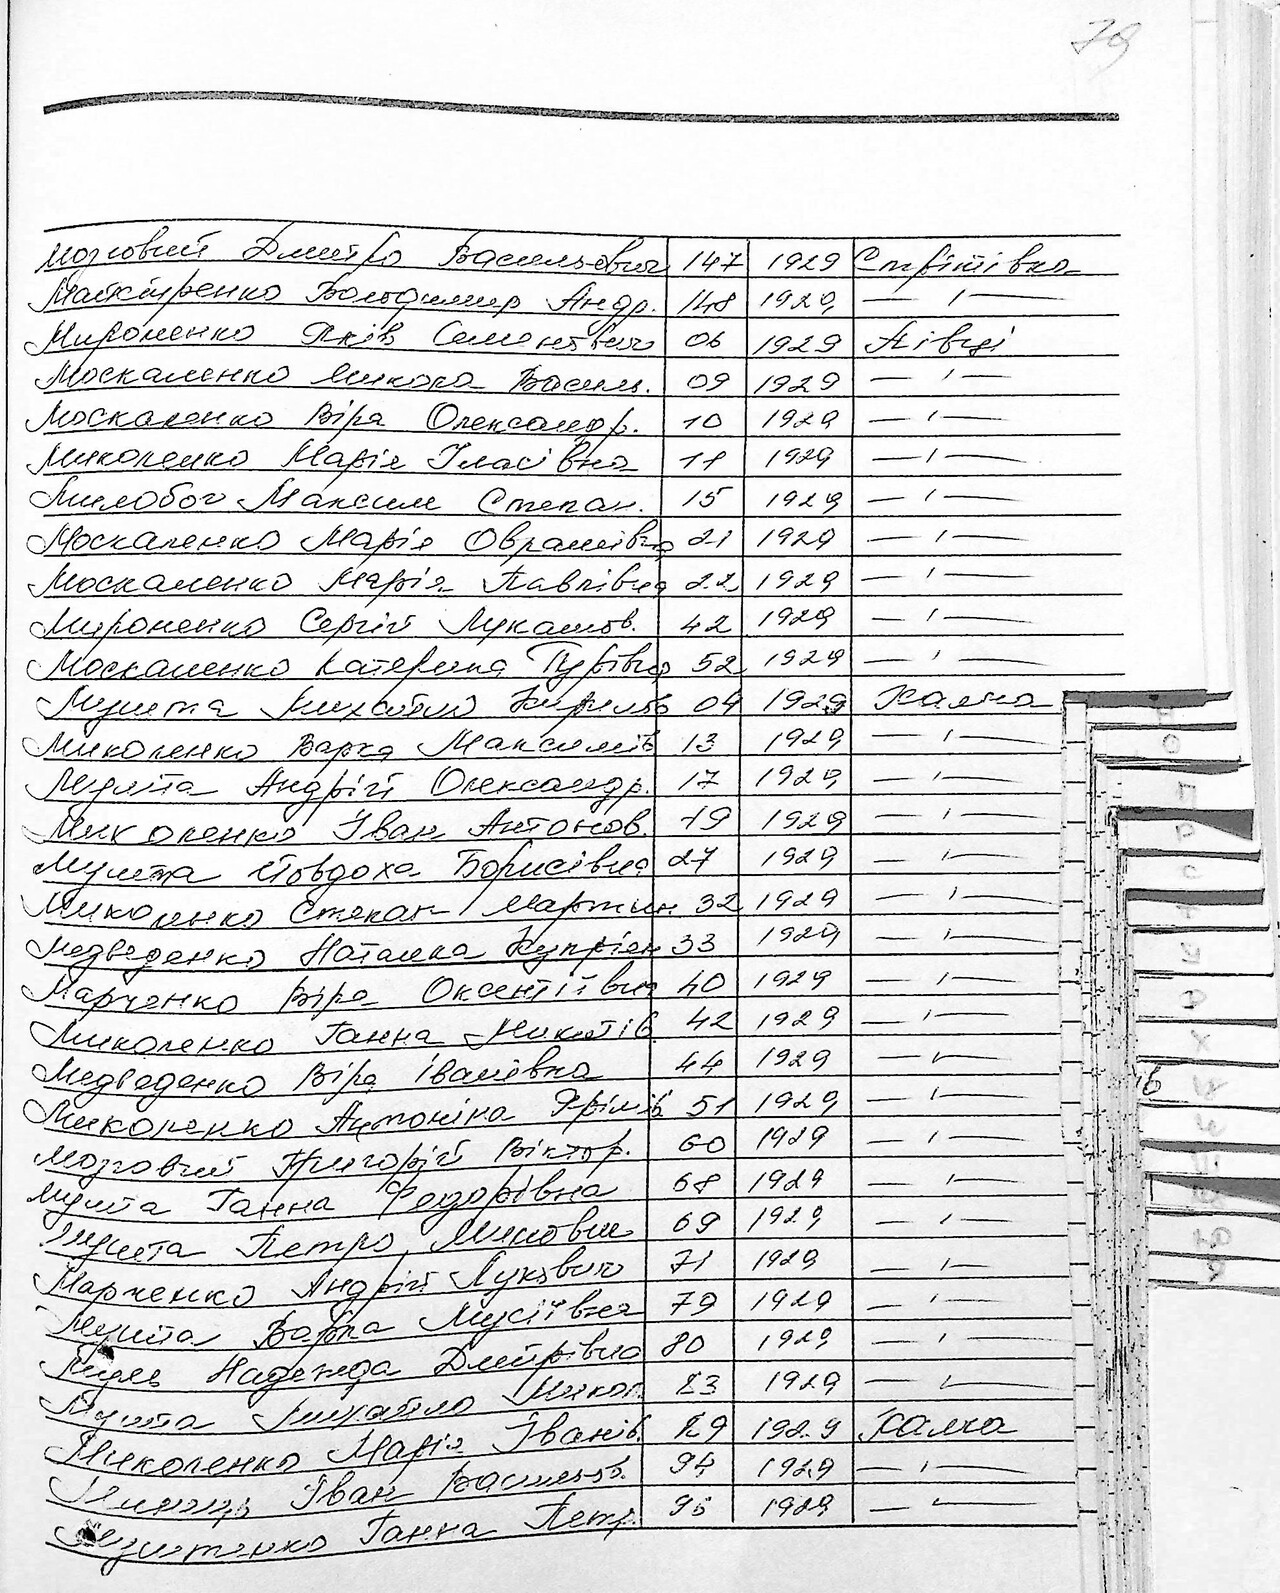 79
Мозговий Дмитро Васильович 147 1929 Снігтівка
Майстренко Володимир Андр. 148 1929 — " —
Мироненко Яків Семенович 06 1929 Півці
Москаленко Микола Васил. 09 1929 — " —
Москаленко Віра Олександр. 10 1929 — " —
Миколенко Марія Власівна 11 1929 — " —
Милобог Максим Степан. 15 1929 — " —
Москаленко Марія Оврамівна 21 1929 — " —
Москаленко Марія Павлівна 22 1929 — " —
Мироненко Сергій Лукашов. 42 1929 — " —
Москаленко Катерина Гурівна 52 1929 — " —
Мушта Михайло Кирилов 04 1929 Кална
Миколенко Варка Максимів 13 1929 — " —
Мушта Андрій Олександр. 17 1929 — " —
Миколенко Іван Антонов. 19 1929 — " —
Мушта Йовдоха Борисівна 27 1929 — " —
Миколенко Степан Мартин 32 1929 — " —
Медведенко Наталка Купріян 33 1929 — " —
Марченко Віра Оксентіївна 40 1929 — " —
Миколенко Ганна Микитів 42 1929 — " —
Медведенко Віра Іванівна 44 1929 — " —
Миколенко Антоніна Юхимів 51 1929 — " —
Мозговий Григорій Віктор. 60 1929 — " —
Мушта Ганна Федорівна 68 1929 — " —
Мушта Петро Минович 69 1929 — " —
Марченко Андрій Лукович 71 1929 — " —
Мушта Варка Мусіївна 79 1929 — " —
Надежда Дмитрівна 80 1929 — " —
Мушта Михайло Микол. 83 1929 — " —
Миколенко Марія Іванів. 89 1929 Кална
Іван Васильов. 94 1929 — " —
Муштенко Ганна Петр. 95 1929 — " —